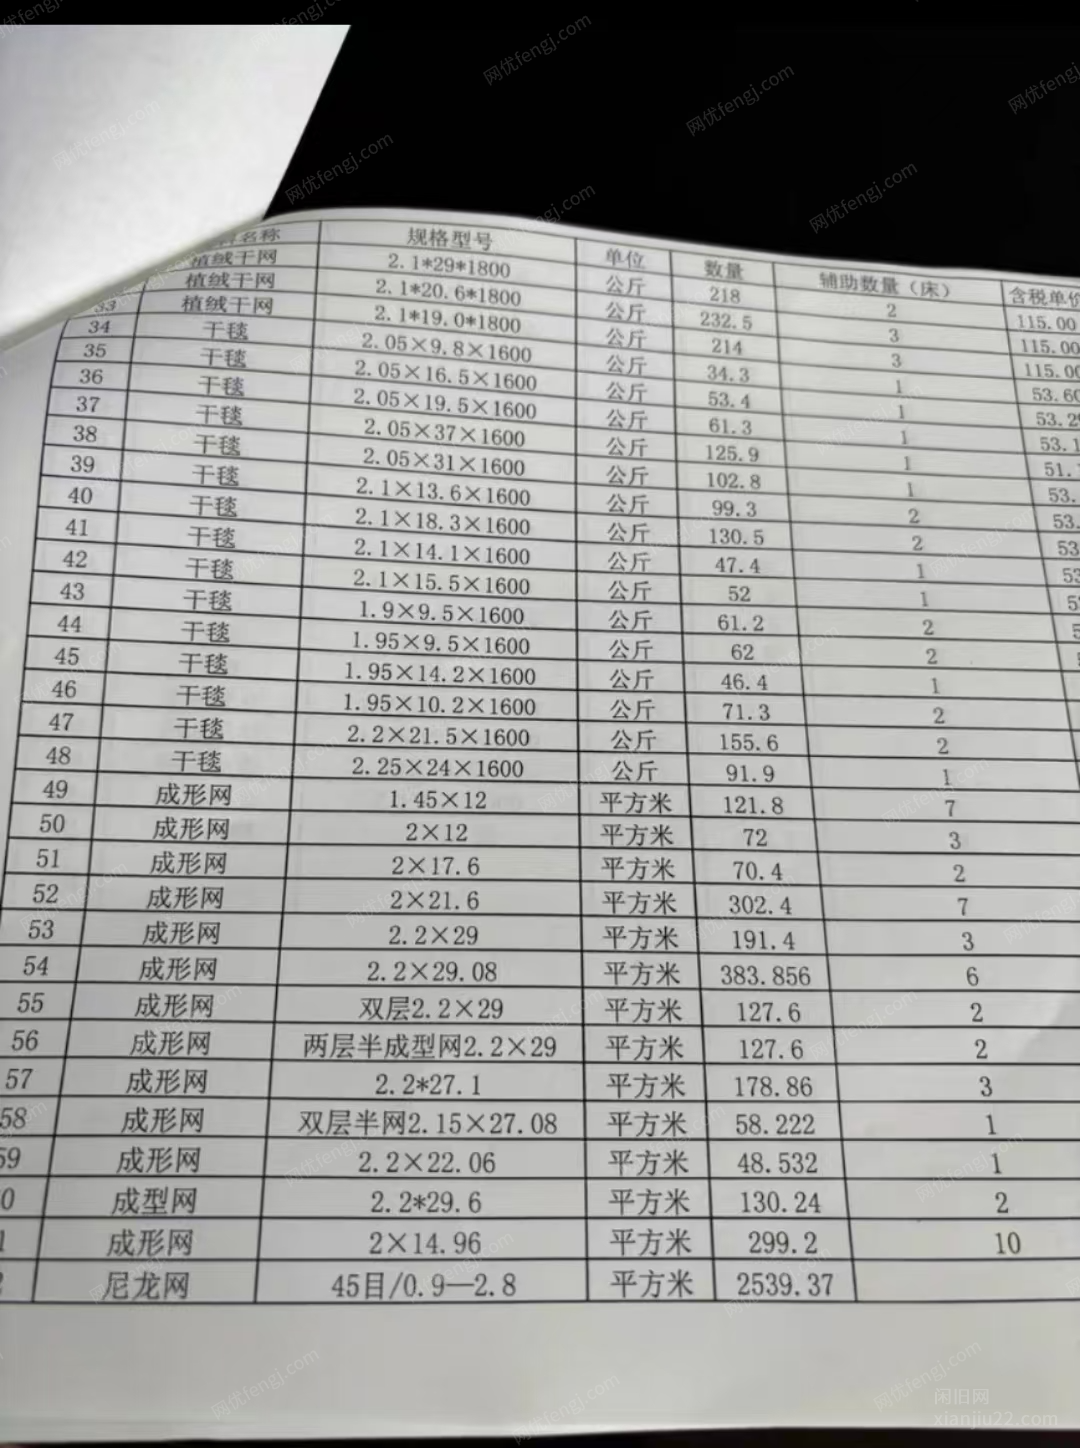 名称 规格型号 单位 数量 辅助数量（床） 含税单价
植绒干网 2.1*29*1800 公斤 218 2 115.00
植绒干网 2.1*20.6*1800 公斤 232.5 3 115.00
33 植绒干网 2.1*19.0*1800 公斤 214 3 115.00
34 干毯 2.05×9.8×1600 公斤 34.3 1 53.60
35 干毯 2.05×16.5×1600 公斤 53.4 1 53.2
36 干毯 2.05×19.5×1600 公斤 61.3 1 53.1
37 干毯 2.05×37×1600 公斤 125.9 1 51.
38 干毯 2.05×31×1600 公斤 102.8 1 53.
39 干毯 2.1×13.6×1600 公斤 99.3 2 53.
40 干毯 2.1×18.3×1600 公斤 130.5 2 53
41 干毯 2.1×14.1×1600 公斤 47.4 1 53
42 干毯 2.1×15.5×1600 公斤 52 1
43 干毯 1.9×9.5×1600 公斤 61.2 2
44 干毯 1.95×9.5×1600 公斤 62 2
45 干毯 1.95×14.2×1600 公斤 46.4 1
46 干毯 1.95×10.2×1600 公斤 71.3 2
47 干毯 2.2×21.5×1600 公斤 155.6 2
48 干毯 2.25×24×1600 公斤 91.9 1
49 成形网 1.45×12 平方米 121.8 7
50 成形网 2×12 平方米 72 3
51 成形网 2×17.6 平方米 70.4 2
52 成形网 2×21.6 平方米 302.4 7
53 成形网 2.2×29 平方米 191.4 3
54 成形网 2.2×29.08 平方米 383.856 6
55 成形网 双层2.2×29 平方米 127.6 2
56 成形网 两层半成型网2.2×29 平方米 127.6 2
57 成形网 2.2*27.1 平方米 178.86 3
58 成形网 双层半网2.15×27.08 平方米 58.222 1
59 成形网 2.2×22.06 平方米 48.532 1
0 成型网 2.2*29.6 平方米 130.24 2
1 成形网 2×14.96 平方米 299.2 10
尼龙网 45目/0.9—2.8 平方米 2539.37
网优fengj.com
闲旧网
xianjiu22.com